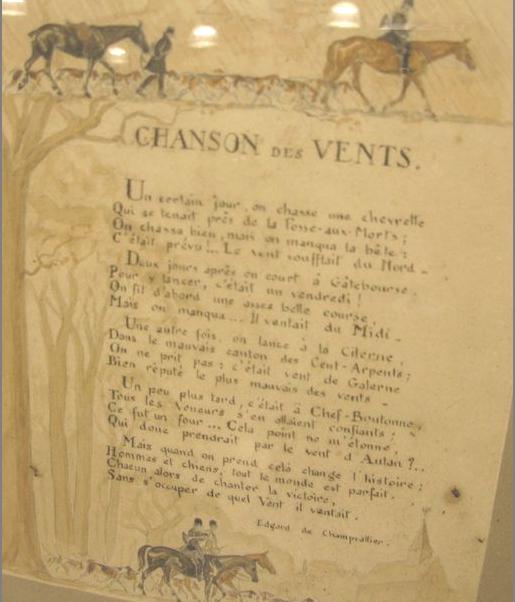 CHANSON DES VENTS.
Un certain jour, on chasse une chevrette
Qui se tenait près de la Fosse-aux-Morts ;
On chassa bien, mais on manqua la bête :
C'était prévu !... Le vent soufflait du Nord -
Deux jours après on court à Gâtebourse.
Pour y lancer, c'était un vendredi !
On fit d'abord une assez belle course,
Mais on manqua... Il ventait du Midi -
Une autre fois, on lance à la Citerne,
Dans le mauvais canton des Cent-Arpents ;
On ne prit pas : c'était vent de Galerne
Bien réputé le plus mauvais des vents -
Un peu plus tard, c'était à Chef-Boutonne,
Tous les Veneurs s'en allaient confiants ;
Ce fut un four... Cela point ne m'étonne,
Qui donc prendrait par le vent d'Autan ?...
Mais quand on prend celà change l'histoire ;
Hommes et chiens, tout le monde est parfait.
Chacun alors de chanter la victoire,
Sans s'occuper de quel Vent il ventait.
Edgard de Champvallier.